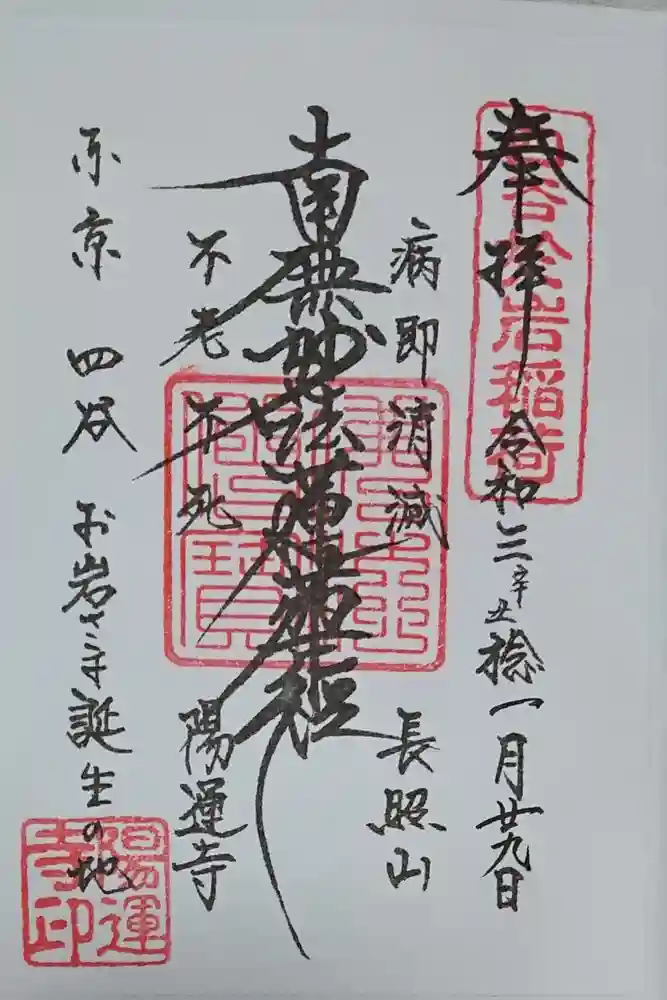 奉拝 令和三辛丑捻一月廿九日
四谷於岩稲荷
病即消滅 長照山
南無妙法蓮華経
不老不死 陽運寺
東京 四谷 お岩さま誕生の地
陽運寺印